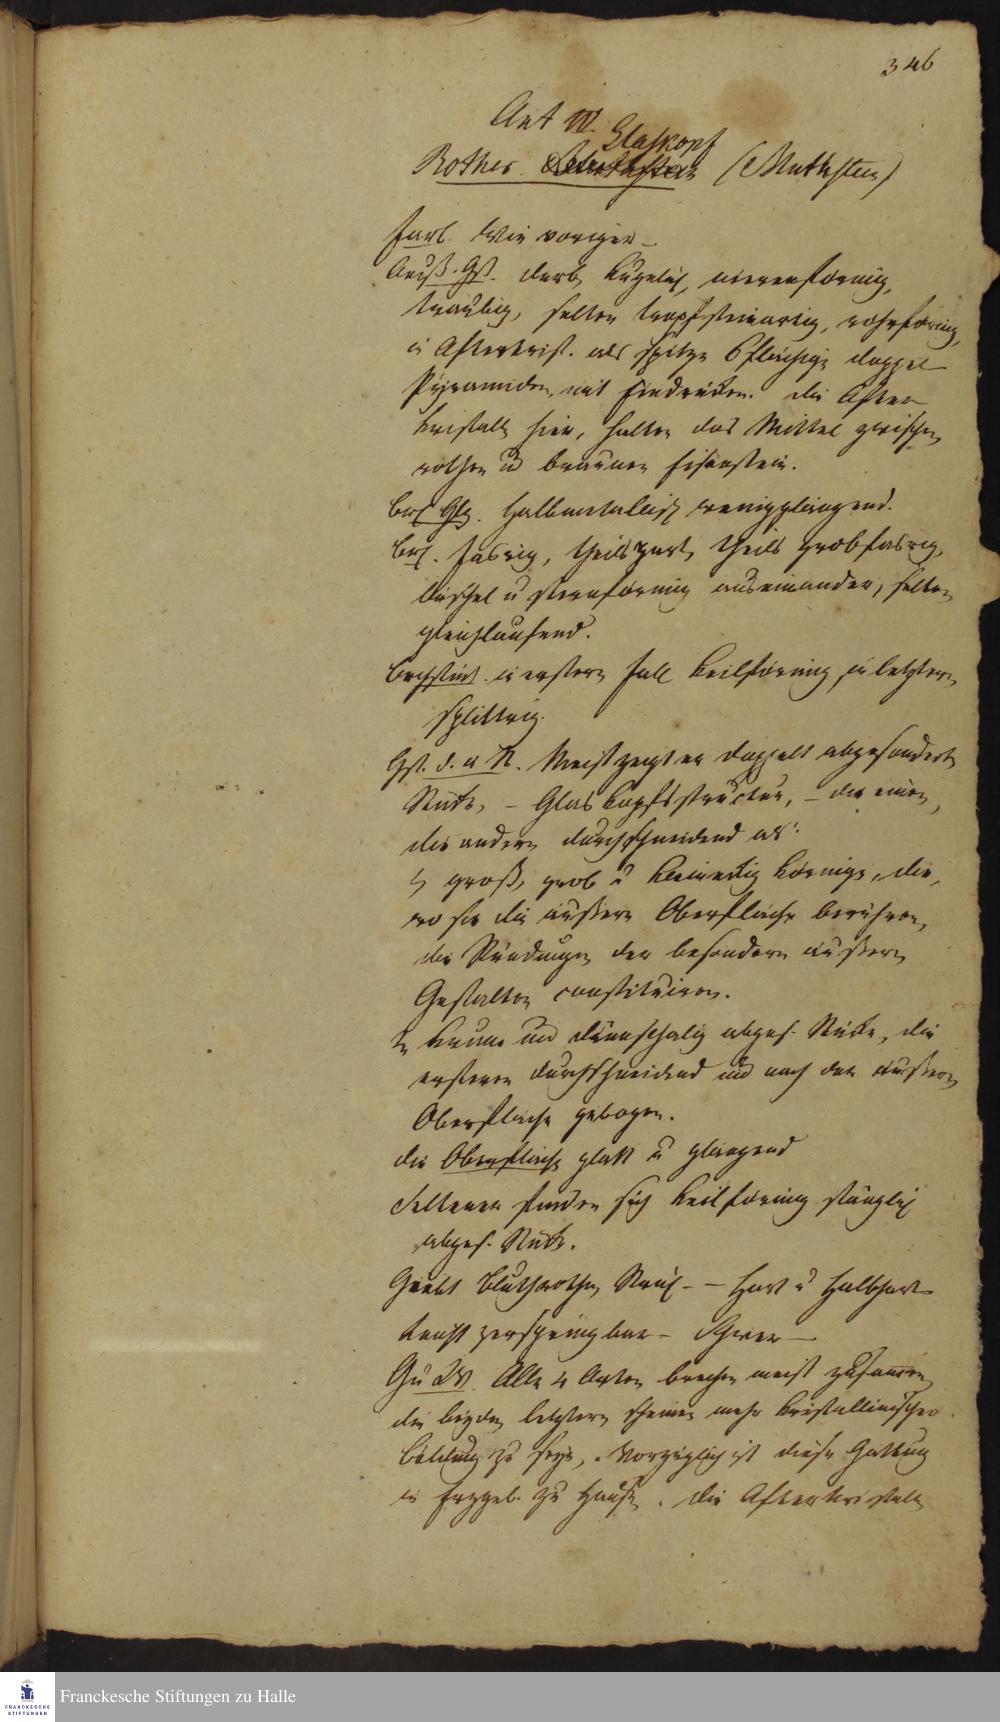 346
Art IV.
Glaskopf
Rother (Bluthstein)
Farb. Wie voriger –
Aeuß. Gst. derb, kugelich, nierenförmig,
traubig, selten tropfsteinartig, rohrförmig,
in Afterkrist. als spitze 6flächige doppel
Pyramiden, mit Eindrücken. die After
kristalle hier, halten das Mittel zwischen
rothen u braunen Eisenstein.
Brch Glz. Halbmetallisch wenigglänzend.
Brch. fasrig, theils zart, theils grobfasrig,
büschel u sternförmig auseinander, selten
gleichlaufend.
Brchstück. in erstern Fall keilförmig, in letztern
splittrig.
Gst. d. a St. Meist zeigt er doppelt abgesonderte
Stücke, – Glaskopfsstructur, – die einen,
die andern durchschneidend als:
groß, grob u kleineckig körnige, die,
wo sie die äussere Oberfläche berühren,
die Ründungen der besondern äussern
Gestalten constituiren.
krumm und dünnschalig abges. Stücke, die
ersteren durchschneidend und nach der äussern
Oberfläche gebogen.
die Oberfläche glatt u glänzend
Seltener finden sich keilförmig stänglich
abges. Stücke.
Giebt bluthrothen Strich – – Hart u Halbhart
leicht zerspringbar – Schwer –
Alle 4 Arten brechen meist zusammen,
die beyden letztern scheinen mehr kristallinischer
bildung zu seyn, . Vorzüglich ist diese Gattung
in Erzgeb. zu Hause. Die Afterkristalle
Franckesche Stiftungen zu Halle
FRANCKESCHE
STIFTUNGEN